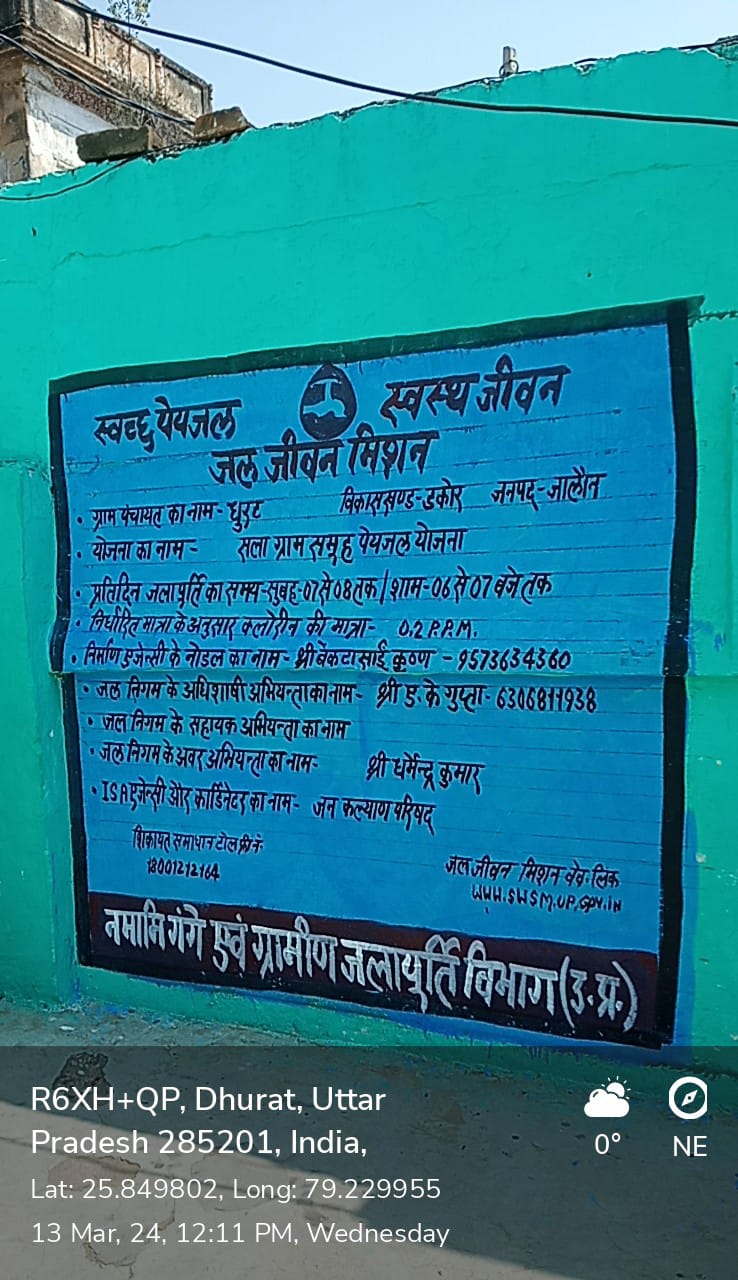 स्वच्छ पेयजल स्वस्थ जीवन
जल जीवन मिशन
• ग्राम पंचायत का नाम - धुरट विकासखण्ड - डकोर जनपद - जालौन
• योजना का नाम - सला ग्राम समूह पेयजल योजना
• प्रतिदिन जलापूर्ति का समय - सुबह - 07 से 08 तक / शाम - 06 से 07 बजे तक
• निर्धारित मात्रा के अनुसार क्लोरीन की मात्रा - 0.2 P.P.M.
• निर्माण एजेन्सी के नोडल का नाम - श्री बेंकटा साई कृष्ण - 9573634360
• जल निगम के अधिशाषी अभियन्ता का नाम - श्री ए. के गुप्ता - 6306811938
• जल निगम के सहायक अभियन्ता का नाम
• जल निगम के अवर अभियन्ता का नाम - श्री धर्मेन्द्र कुमार
• ISA एजेन्सी और कार्डिनेटर का नाम - जन कल्याण परिषद्
शिकायत समाधान टोल फ्री नं०
18001212164
जल जीवन मिशन वेब लिंक
WWW.SWSM.UP.GOV.IN
नमामि गंगे एवं ग्रामीण जलापूर्ति विभाग (उ.प्र.)
R6XH+QP, Dhurat, Uttar
Pradesh 285201, India,
0° NE
Lat: 25.849802, Long: 79.229955
13 Mar, 24, 12:11 PM, Wednesday